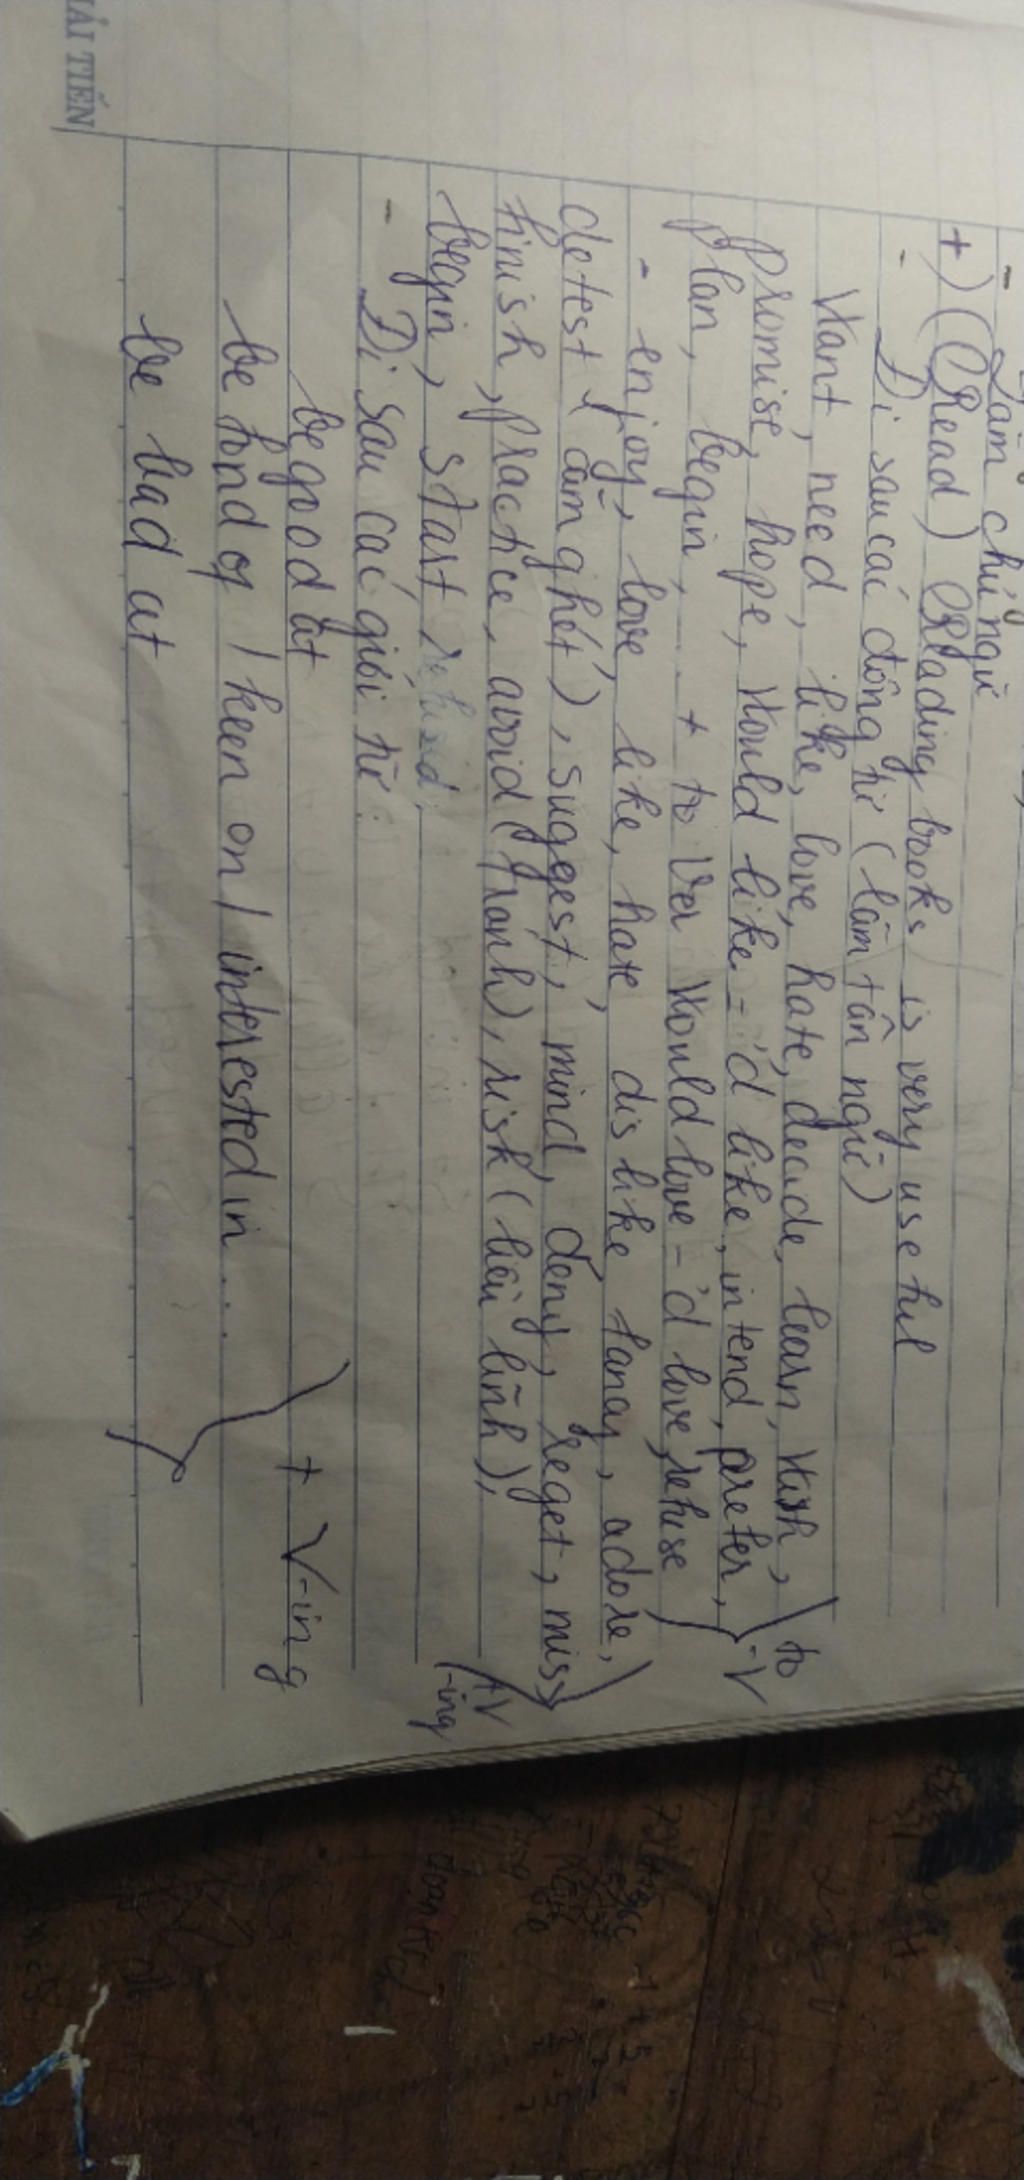 - Làm chủ ngữ
+) (Read) Reading books is very useful
- Đi sau các động từ (làm tân ngữ)
Want, need, like, love, hate, decide, learn, wish,
promise, hope, would like = 'd like, intend, prefer,
plan, begin, ... + to V
would love = 'd love, refuse
to -V
- enjoy, love, like, hate, dislike, fancy, adore,
detest (căm ghét), suggest, mind, deny, reget, miss,
finish, practice, avoid (tránh), risk (liều lĩnh),
+V -ing
begin, start
- Đi sau các giới từ:
be good at
be fond of / keen on / interested in ...
+ V-ing
be bad at
HẢI TIẾN